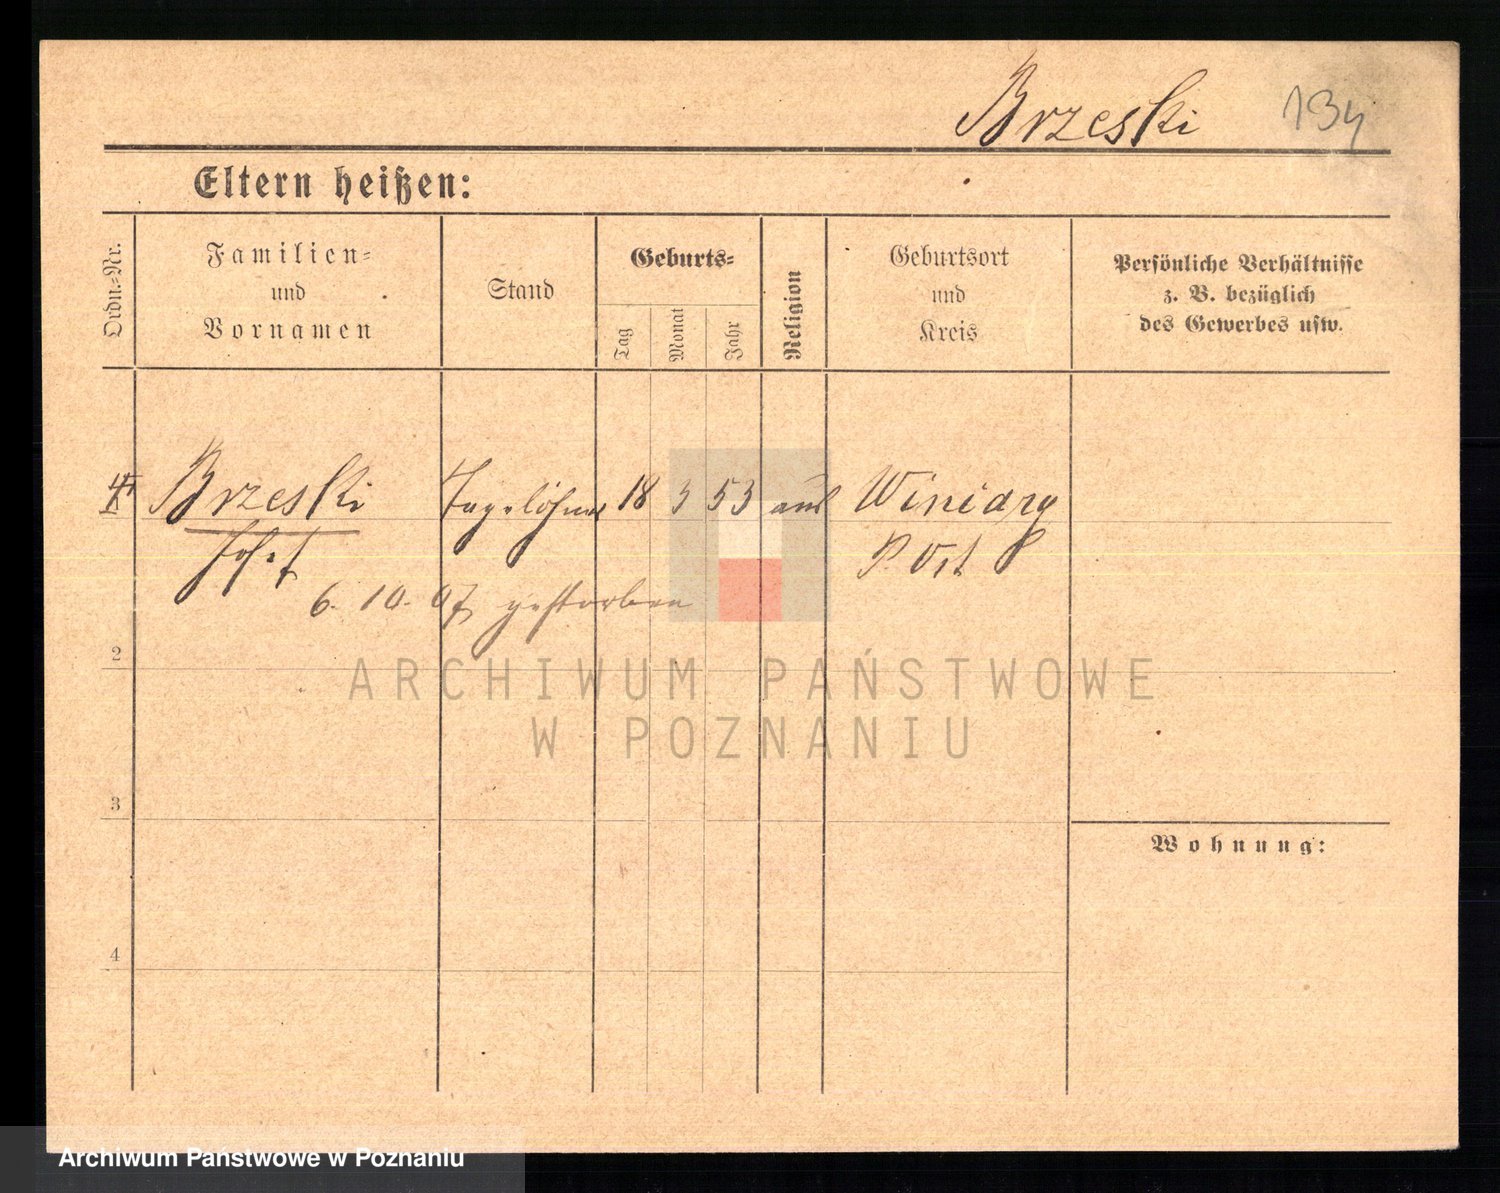 Brzeski 134
Eltern heißen:
Ordn.-Nr.
Familien-
und
Vornamen
Stand
Geburts-
Tag
Monat
Jahr
Religion
Geburtsort
und
Kreis
Persönliche Verhältnisse
z. B. bezüglich
des Gewerbes usw.
Brzeski Tagelöhner 18 3 53 Winiary
Josef P Ost
6. 10. 07 gestorben
2
3
4
Wohnung:
ARCHIWUM PAŃSTWOWE
W POZNANIU
Archiwum Państwowe w Poznaniu